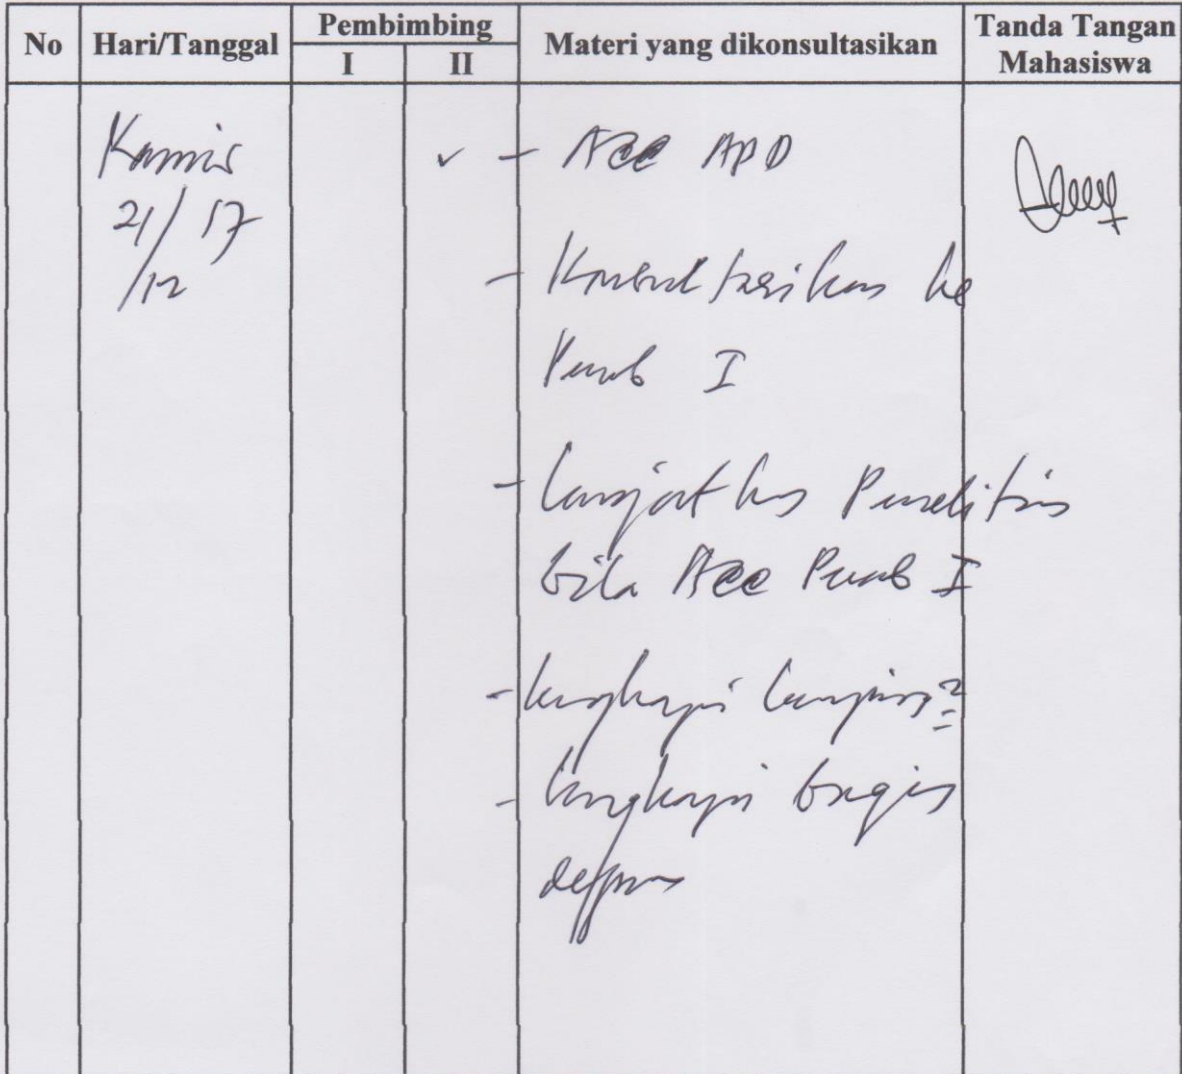 No Hari/Tanggal Pembimbing Materi yang dikonsultasikan Tanda Tangan Mahasiswa
I II
Kamis ✓ - Acc APD
21/12 17
- Konsultasikan ke
Pemb I
- Lanjutkan Penelitian
bila Acc Pemb I
- Lengkapi Lampiran2
- Lengkapi bagian
depan